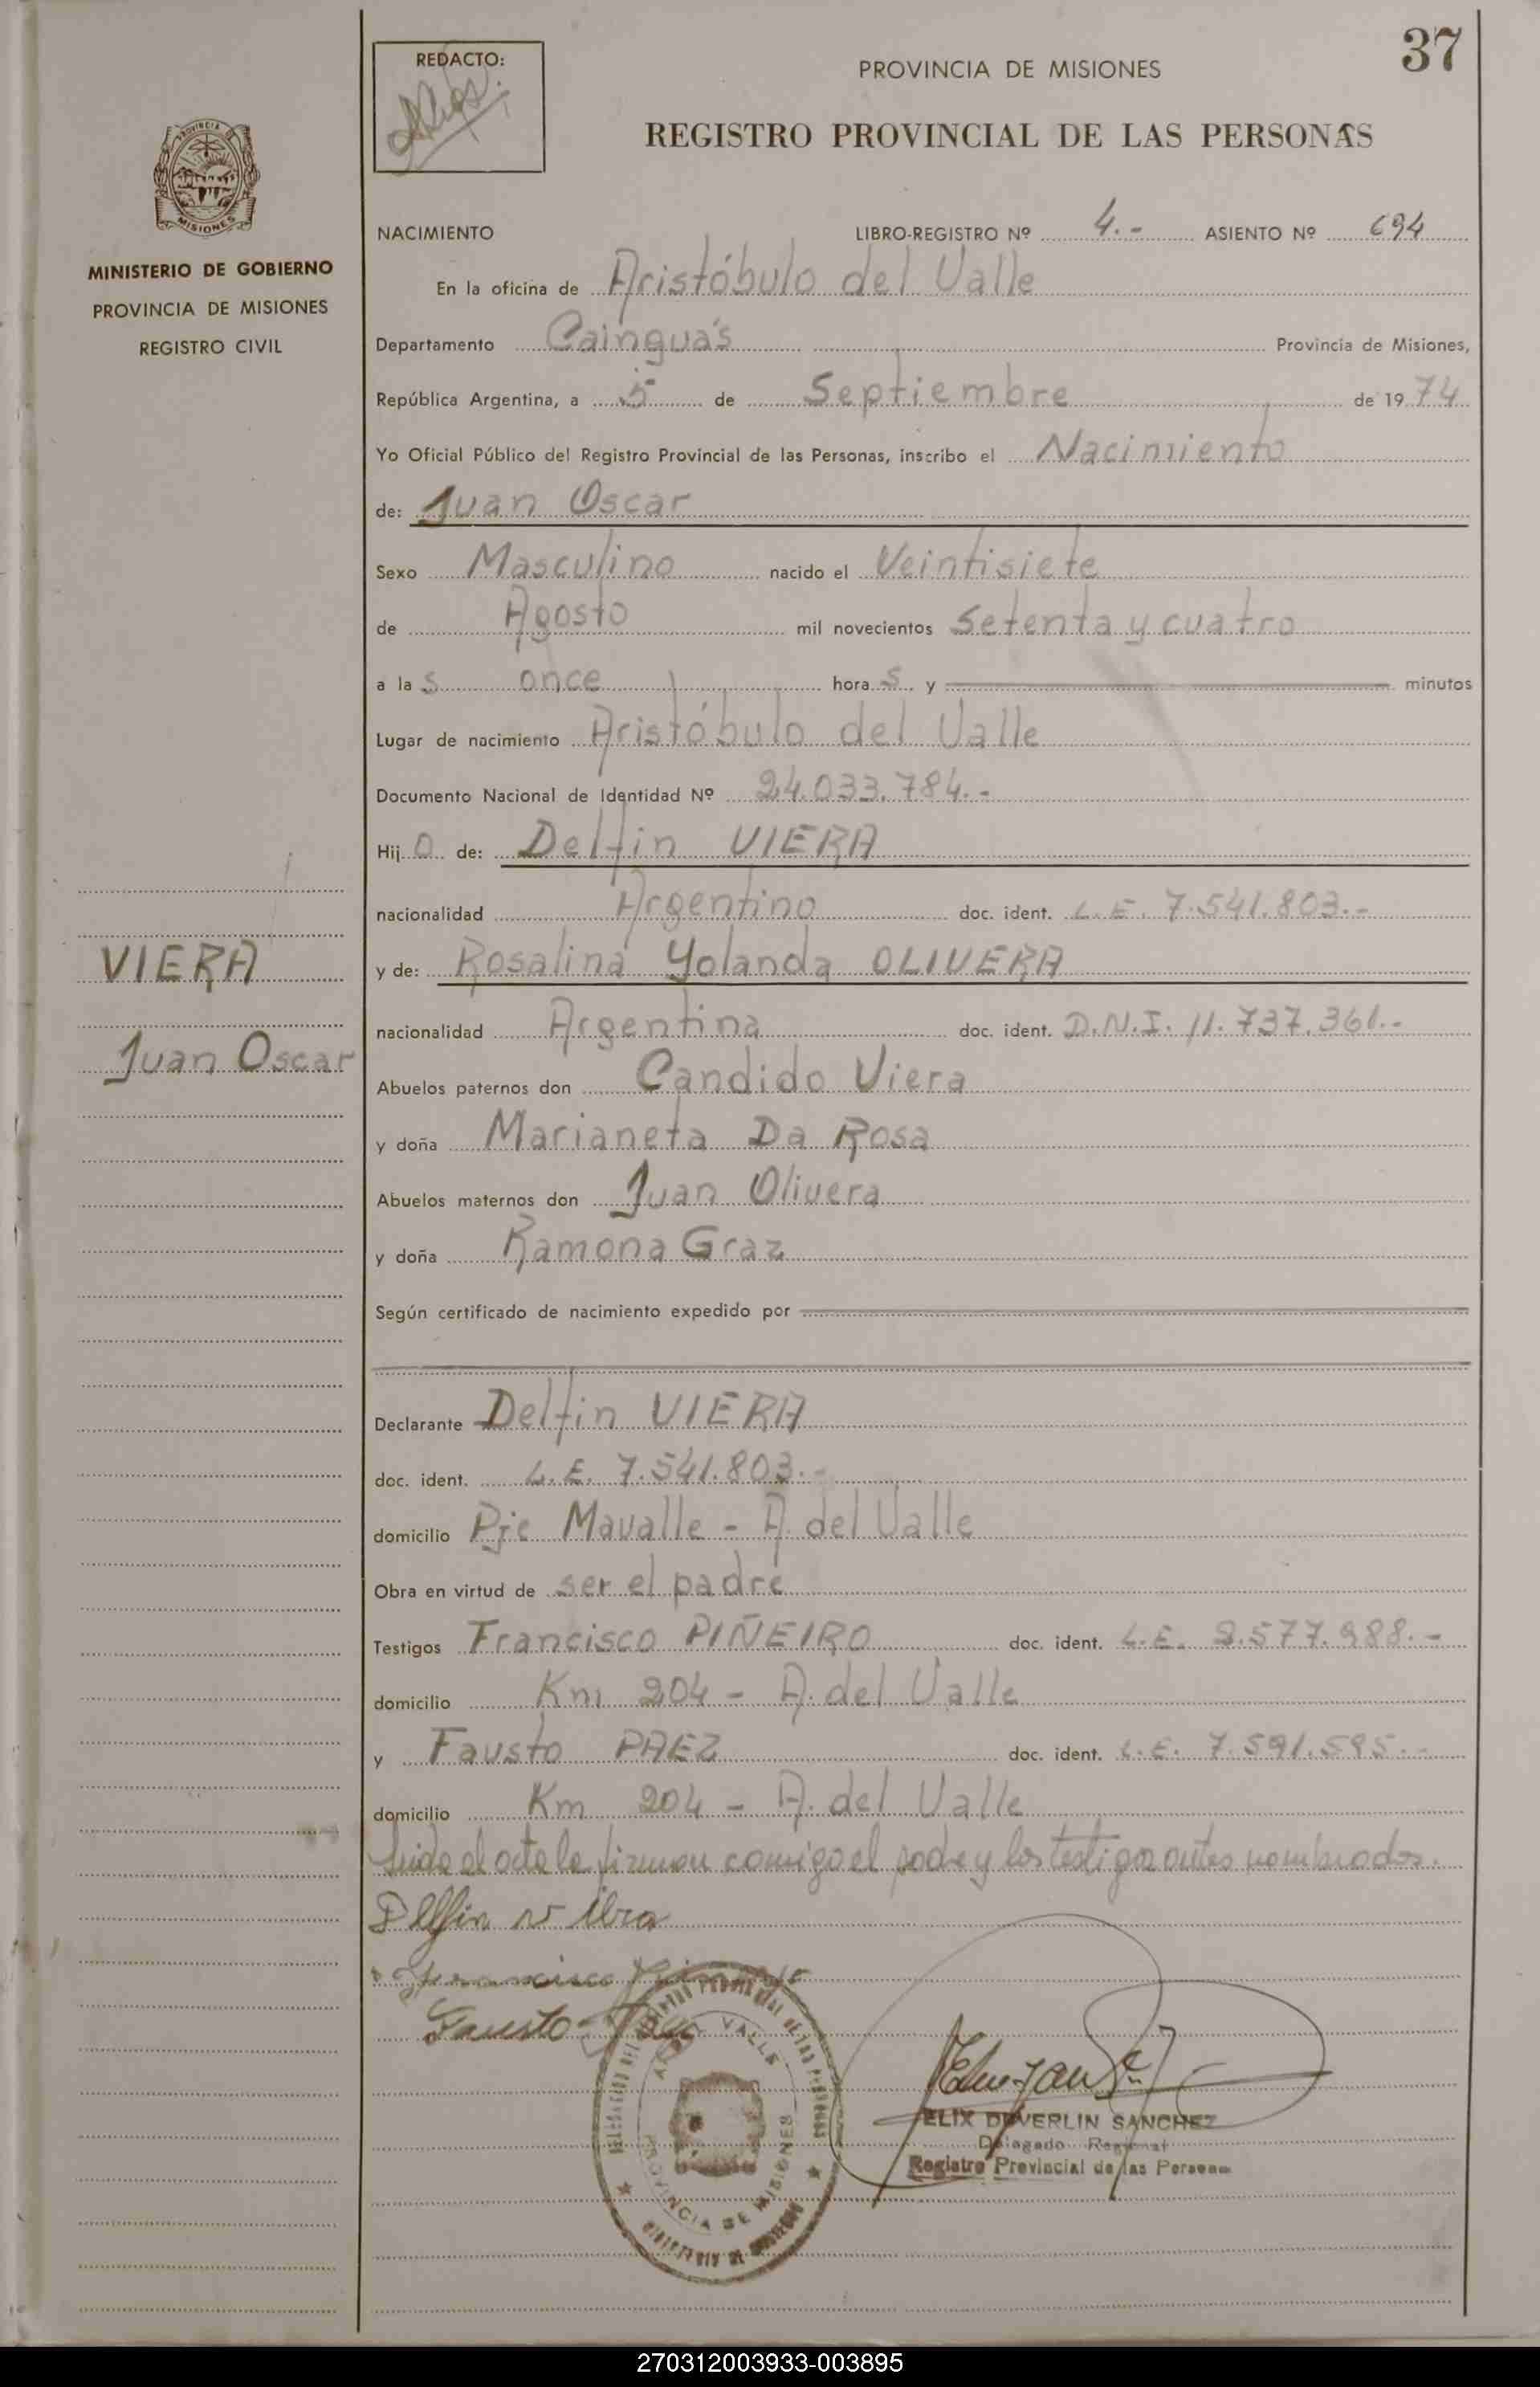 37
REDACTO:
PROVINCIA DE MISIONES
REGISTRO PROVINCIAL DE LAS PERSONAS
PROVINCIA DE
MISIONES
MINISTERIO DE GOBIERNO
PROVINCIA DE MISIONES
REGISTRO CIVIL
NACIMIENTO LIBRO-REGISTRO Nº 4.- ASIENTO Nº 694
En la oficina de Aristóbulo del Valle
Departamento Cainguás Provincia de Misiones,
República Argentina, a 5 de Septiembre de 1974
Yo Oficial Público del Registro Provincial de las Personas, inscribo el Nacimiento
de: Juan Oscar
Sexo Masculino nacido el Veintisiete
de Agosto mil novecientos setenta y cuatro
a las once horas y minutos
Lugar de nacimiento Aristóbulo del Valle
Documento Nacional de Identidad Nº 24.033.784.-
Hijo de: Delfin VIERA
nacionalidad Argentino doc. ident. L.E. 7.541.803.-
VIERA
y de: Rosalina Yolanda OLIVERA
nacionalidad Argentina doc. ident. D.N.I. 11.737.361.-
Juan Oscar
Abuelos paternos don Candido Viera
y doña Marianeta Da Rosa
Abuelos maternos don Juan Olivera
y doña Ramona Graz
Según certificado de nacimiento expedido por
Declarante Delfin VIERA
doc. ident. L.E. 7.541.803.-
domicilio Pje Mavalle - A. del Valle
Obra en virtud de ser el padre
Testigos Francisco PIÑEIRO doc. ident. L.E. .577.988.-
domicilio Km 204 - A. del Valle
y Fausto PAEZ doc. ident. L.E. 7.591.595.-
domicilio Km 204 - A. del Valle
Leida el acta la firman comigo el padre y los testigos antes nombrados.
Delfin viera
Francisco
Fausto
VALLE
PROVINCIA DE MISIONES
ELIX DUVERLIN SANCHEZ
Delegado Regional
Registro Provincial de las Personas
270312003933-003895